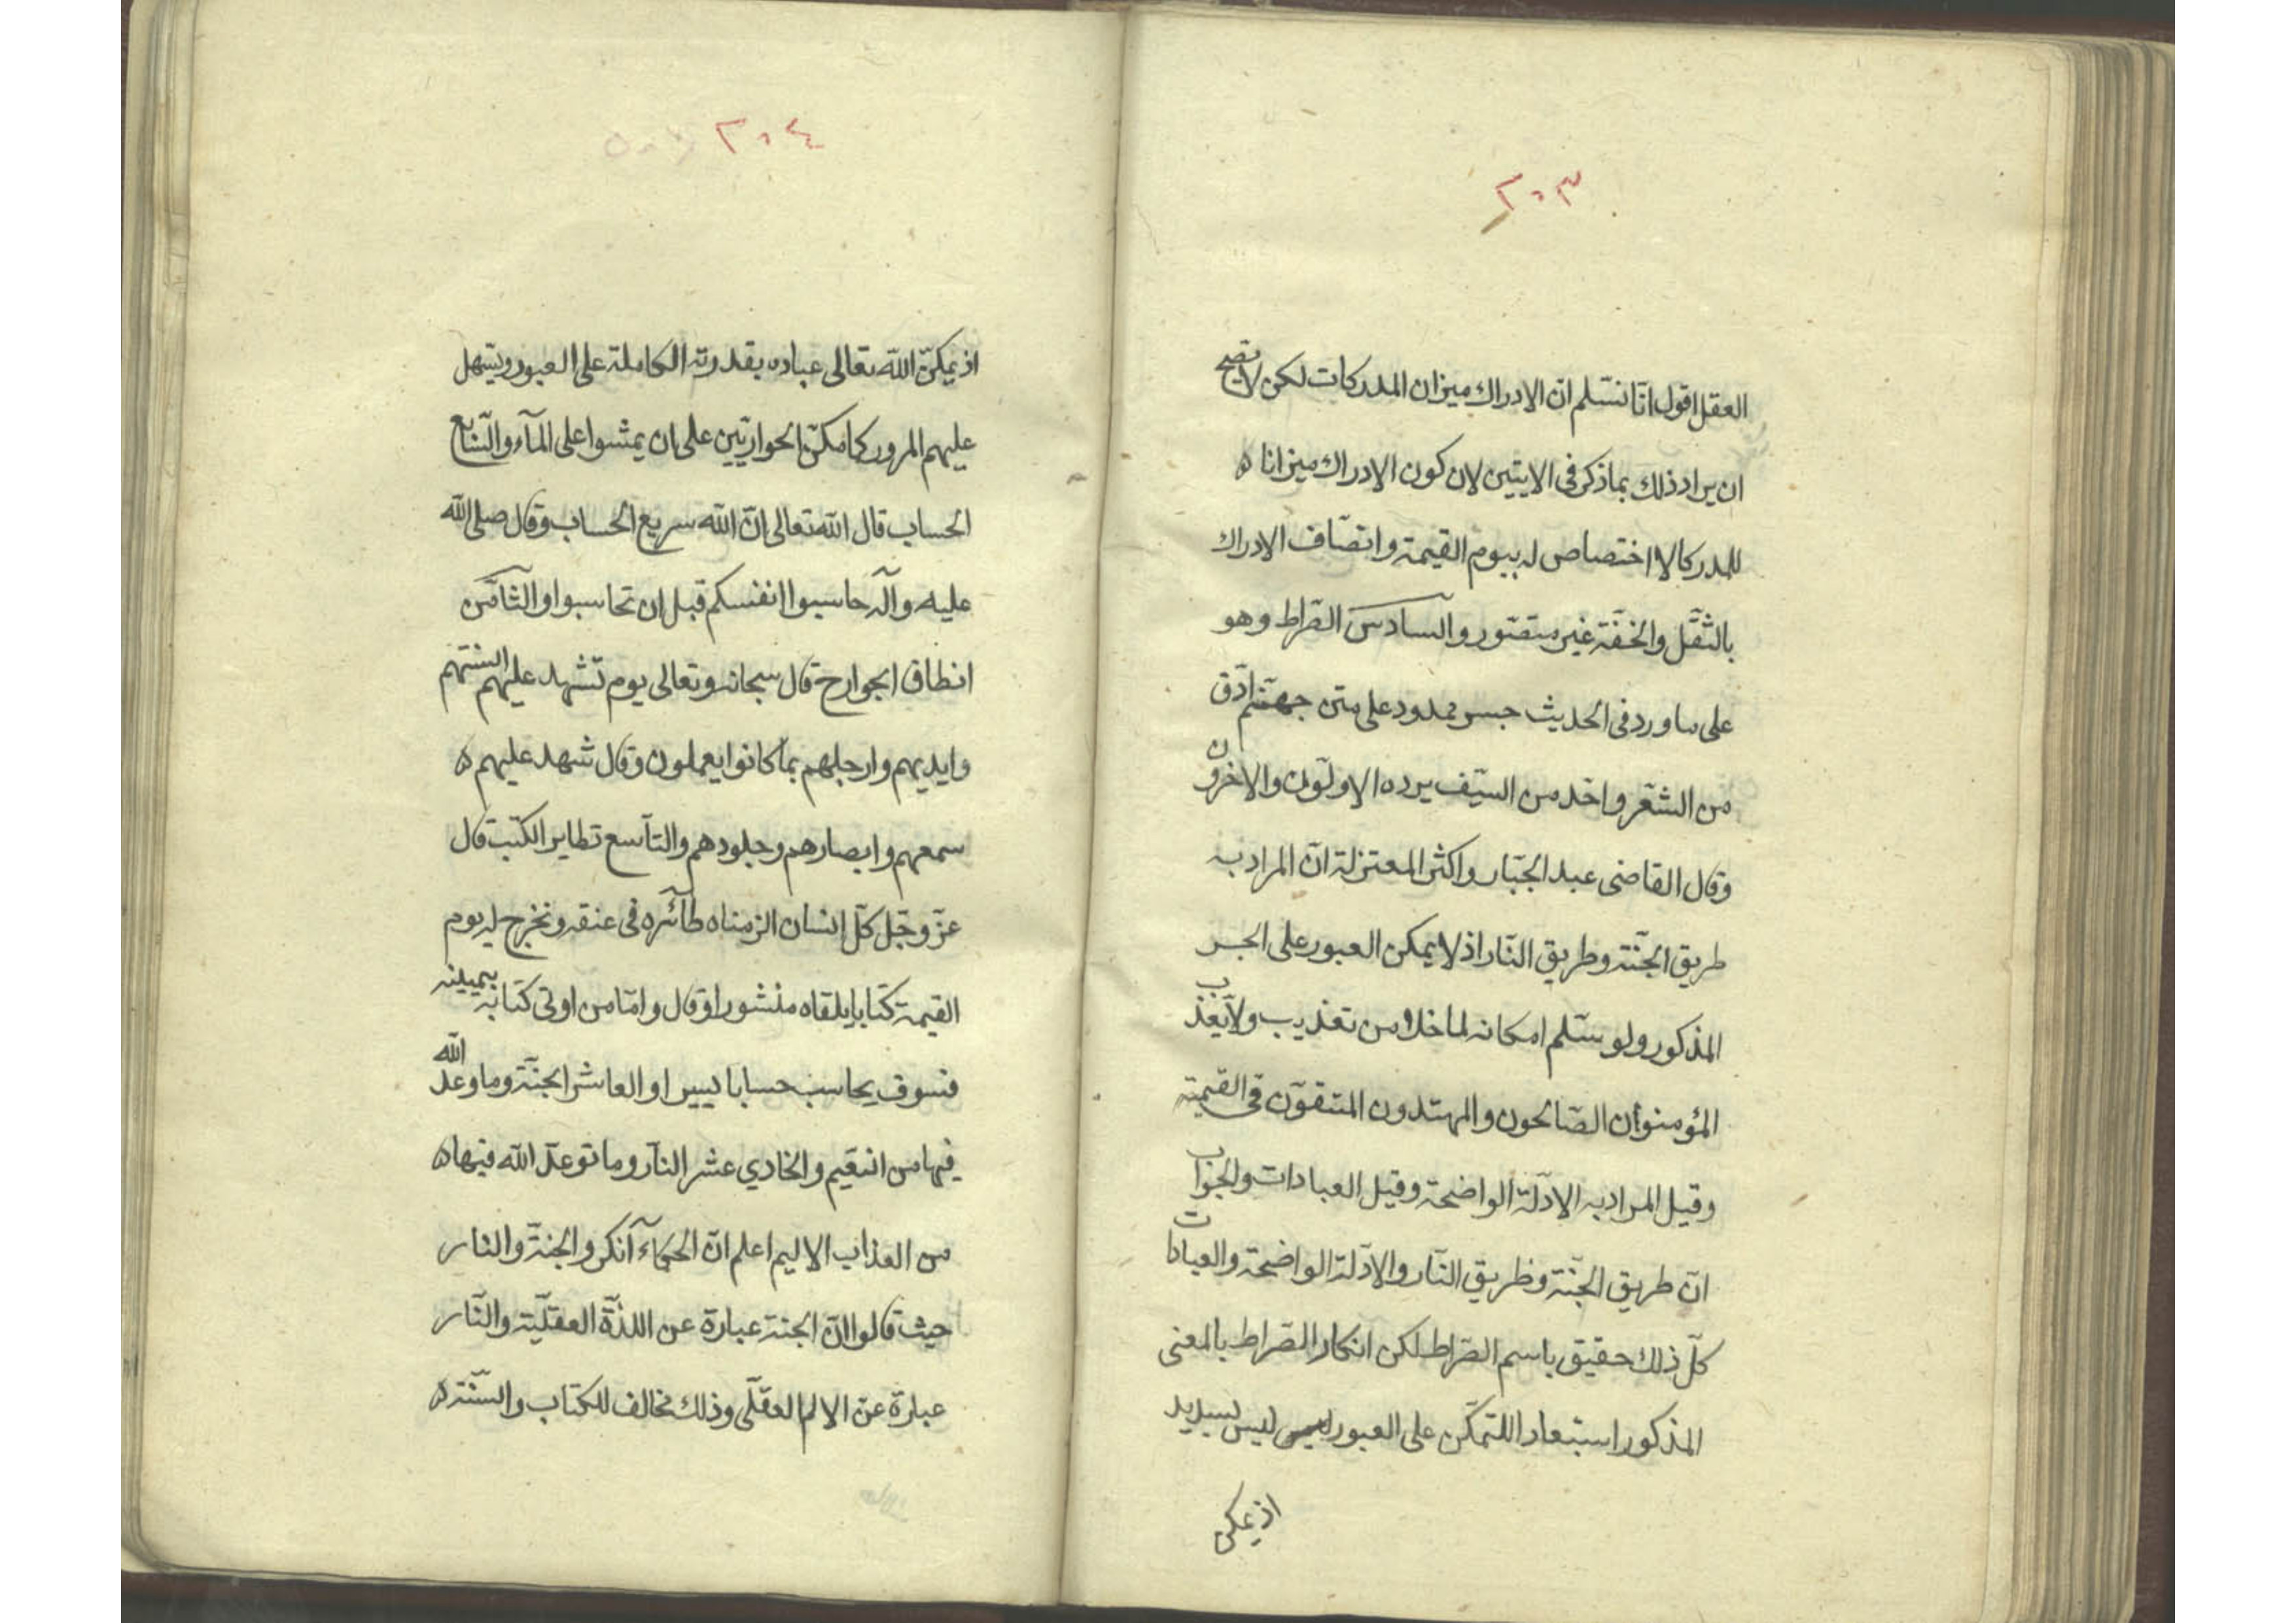 ٢٠٣
العقل اقول انا نسلم ان الادراك ميزان المدركات لكن لا يصح
ان يراد ذلك بما ذكر فى الايتين لان كون الادراك ميزانا ه
للمدركا لا اختصاص له بيوم القيمة واتصاف الادراك
بالثقل والخفة غير متصور والسادس الصراط وهو
على ما ورد فى الحديث جسر ممدود على متن جهنم ادق
من الشعر واحد من السيف يرده الاولون والاخرون
وقال القاضى عبد الجبار واكثر المعتزلة ان المراد به
طريق الجنة وطريق النار اذ لا يمكن العبور على الجسر
المذكور ولو سلم امكانه لما خلا من تعذيب ولا يعذب
المؤمنون الصالحون والمهتدون المتقون فى القيمة
وقيل المراد به الادلة الواضحة وقيل العبادات والجواب
ان طريق الجنة وطريق النار والادلة الواضحة والعبادات
كل ذلك حقيق باسم الصراط لكن انكار الصراط بالمعنى
المذكور استبعادا للتمكن على العبور ليس بسديد
اذ يمكن
٢٠٤
اذ يمكن الله تعالى عباده بقدرته الكاملة على العبور ويسهل
عليهم المرور كما مكن الحواريين على ان يمشوا على المآء والسابع
الحساب قال الله تعالى ان الله سريع الحساب وقال صلى الله
عليه وآله حاسبوا انفسكم قبل ان تحاسبوا والثامن
انطاق الجوارح قال سبحانه وتعالى يوم تشهد عليهم السنتهم
وايديهم وارجلهم بما كانوا يعملون وقال شهد عليهم ه
سمعهم وابصارهم وجلودهم والتاسع تطاير الكتب قال
عز وجل كل انسان الزمناه طآئره فى عنقه ونخرج له يوم
القيمة كتابا يلقاه منشورا وقال واما من اوتى كتابه بيمينه
فسوف يحاسب حسابا يسيرا والعاشر الجنة وما وعد الله
فيها من النعيم والحادي عشر النار وما توعد الله فيها ه
من العذاب الاليم اعلم ان الحكمآء انكروا الجنة والنار
حيث قالوا ان الجنة عبارة عن اللذة العقلية والنار
عبارة عن الالم العقلى وذلك مخالف للكتاب والسنة ه